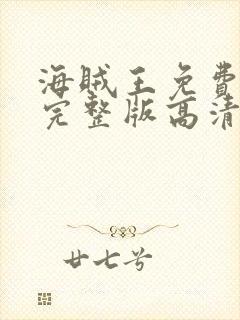 海贼王免費
完整版高清
廿七号